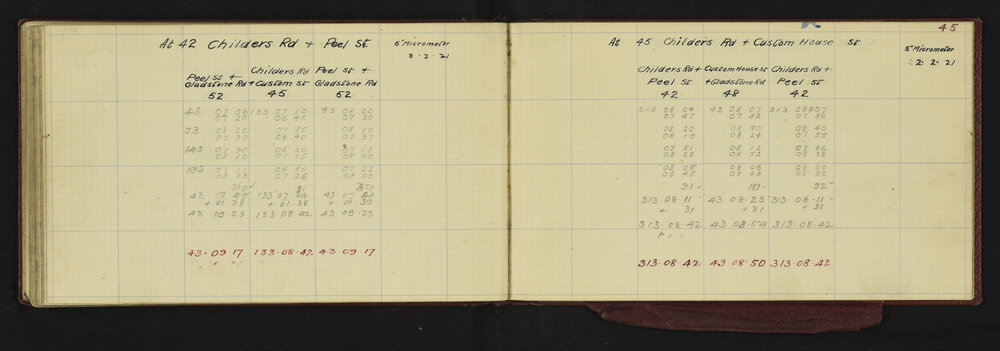 At 42 Childers Rd + Peel St
5" Micrometer
3 . 2 . 21
Peel St + Gladstone Rd
Childers Rd + Custom St
Peel St + Gladstone Rd
52 45 52
43 07 56 133 07 10 43 08 00
07 20 06 45 07 20
93 08 20 07 35 08 10
07 30 06 40 07 37
143 07 30 06 30 07 18
08 10 07 15 08 00
192 07 11 06 50 07 22
08 03 07 26 08 03
43 · 07 133 07 04 43 · 07 44
+ 01 38 + 01 38 + 01 · 39
43 · 09 · 23 133 · 08 · 42 43 · 09 · 23
43 · 09 · 17 133 · 08 · 42 43 · 09 · 17
45
At 45 Childers Rd + Custom House St
5" Micrometer
2 · 2 · 21
Childers Rd + Peel St
Custom House St + Gladstone Rd
Childers Rd + Peel St
42 48 42
313 08 04 43 08 07 313 08 07
07 47 07 52 07 36
08 20 08 40 08 40
08 10 08 24 07 55
07 51 08 12 07 46
08 28 08 52 08 38
08 05 08 06 08 00
08 45 08 48 08 50
91 181 92
313 · 08 · 11 43 · 08 · 23 313 · 08 · 11
+ 31 + 31 + 31
313 · 08 · 42 43 · 08 · 54 313 · 08 · 42
313 · 08 · 42 43 · 08 · 50 313 · 08 · 42